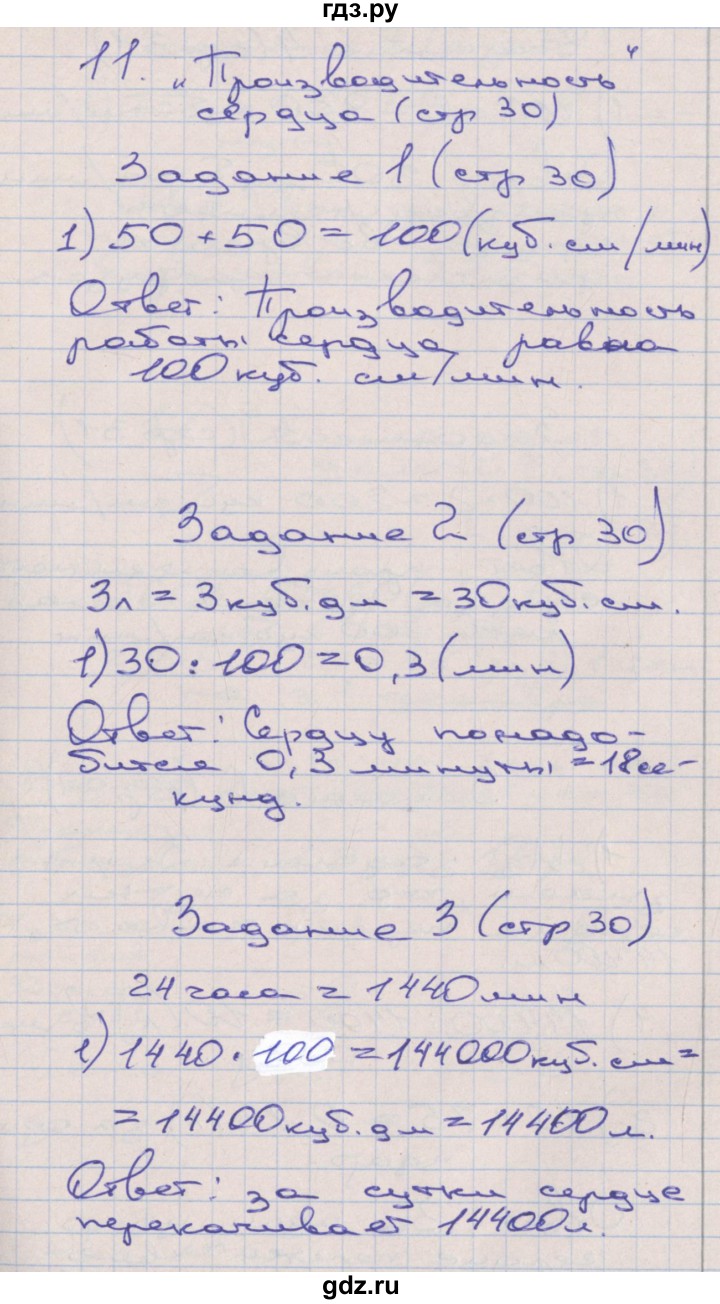 гдз.ру
11. „Производительность"
сердца (стр 30)
Задание 1 (стр 30)
1) 50 + 50 = 100 (куб. см/мин)
Ответ: Производительность
работы сердца равна
100 куб. см/мин.
Задание 2 (стр 30)
3л = 3 куб. дм = 30 куб. см.
1) 30 : 100 = 0,3 (мин)
Ответ: Сердцу понадо-
бится 0,3 минуты = 18 се-
кунд.
Задание 3 (стр 30)
24 часа = 1440 мин
1) 1440 · 100 = 144000 куб. см =
= 14400 куб. дм = 14400 л.
Ответ: за сутки сердце
перекачивает 14400 л.
gdz.ru